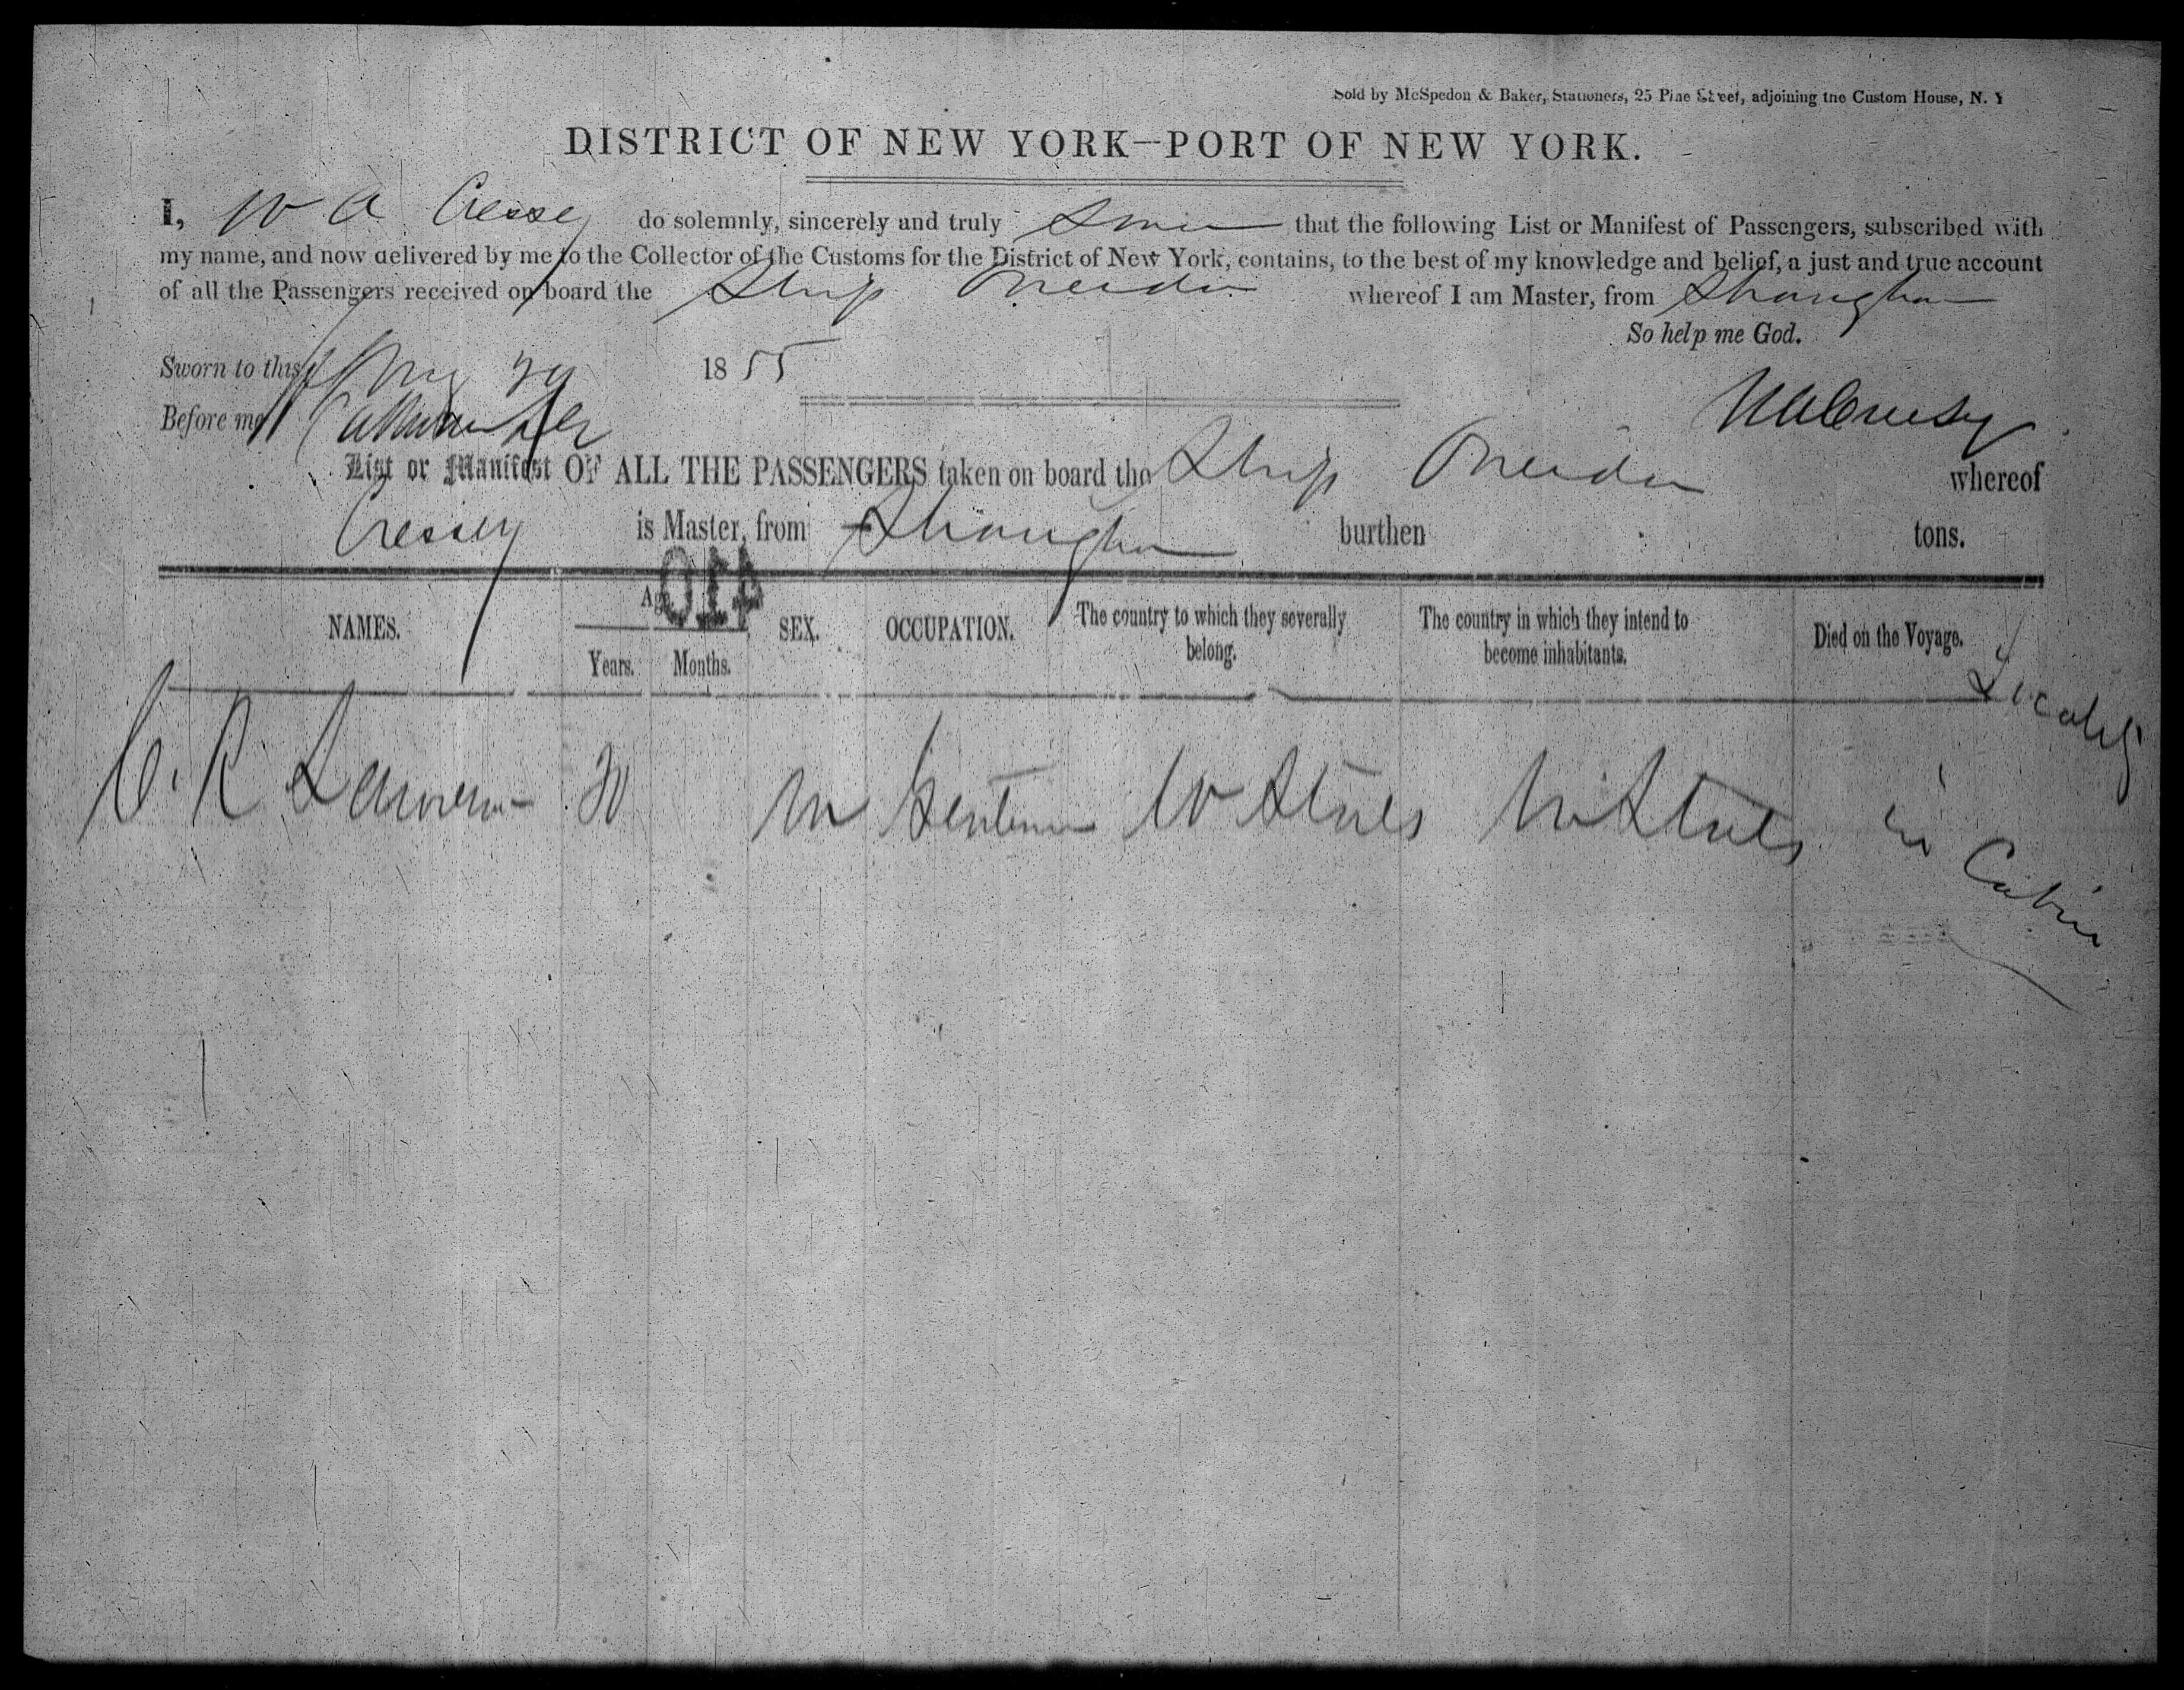 Sold by McSpedon & Baker, Stationers, 25 Pine Street, adjoining the Custom House, N. Y
DISTRICT OF NEW YORK—PORT OF NEW YORK.
I, W A Cressey do solemnly, sincerely and truly Swear that the following List or Manifest of Passengers, subscribed with
my name, and now delivered by me to the Collector of the Customs for the District of New York, contains, to the best of my knowledge and belief, a just and true account
of all the Passengers received on board the Ship Oneida whereof I am Master, from Shanghai
So help me God.
Sworn to this 1855
Before me
W A Cressey
List or Manifest OF ALL THE PASSENGERS taken on board the Ship Oneida whereof
Cressey is Master, from Shanghai burthen tons.
410
NAMES. Age Years. Months. SEX. OCCUPATION. The country to which they severally belong. The country in which they intend to become inhabitants. Died on the Voyage. Locality
C. R 30 M Gentleman U States U States in Cabin